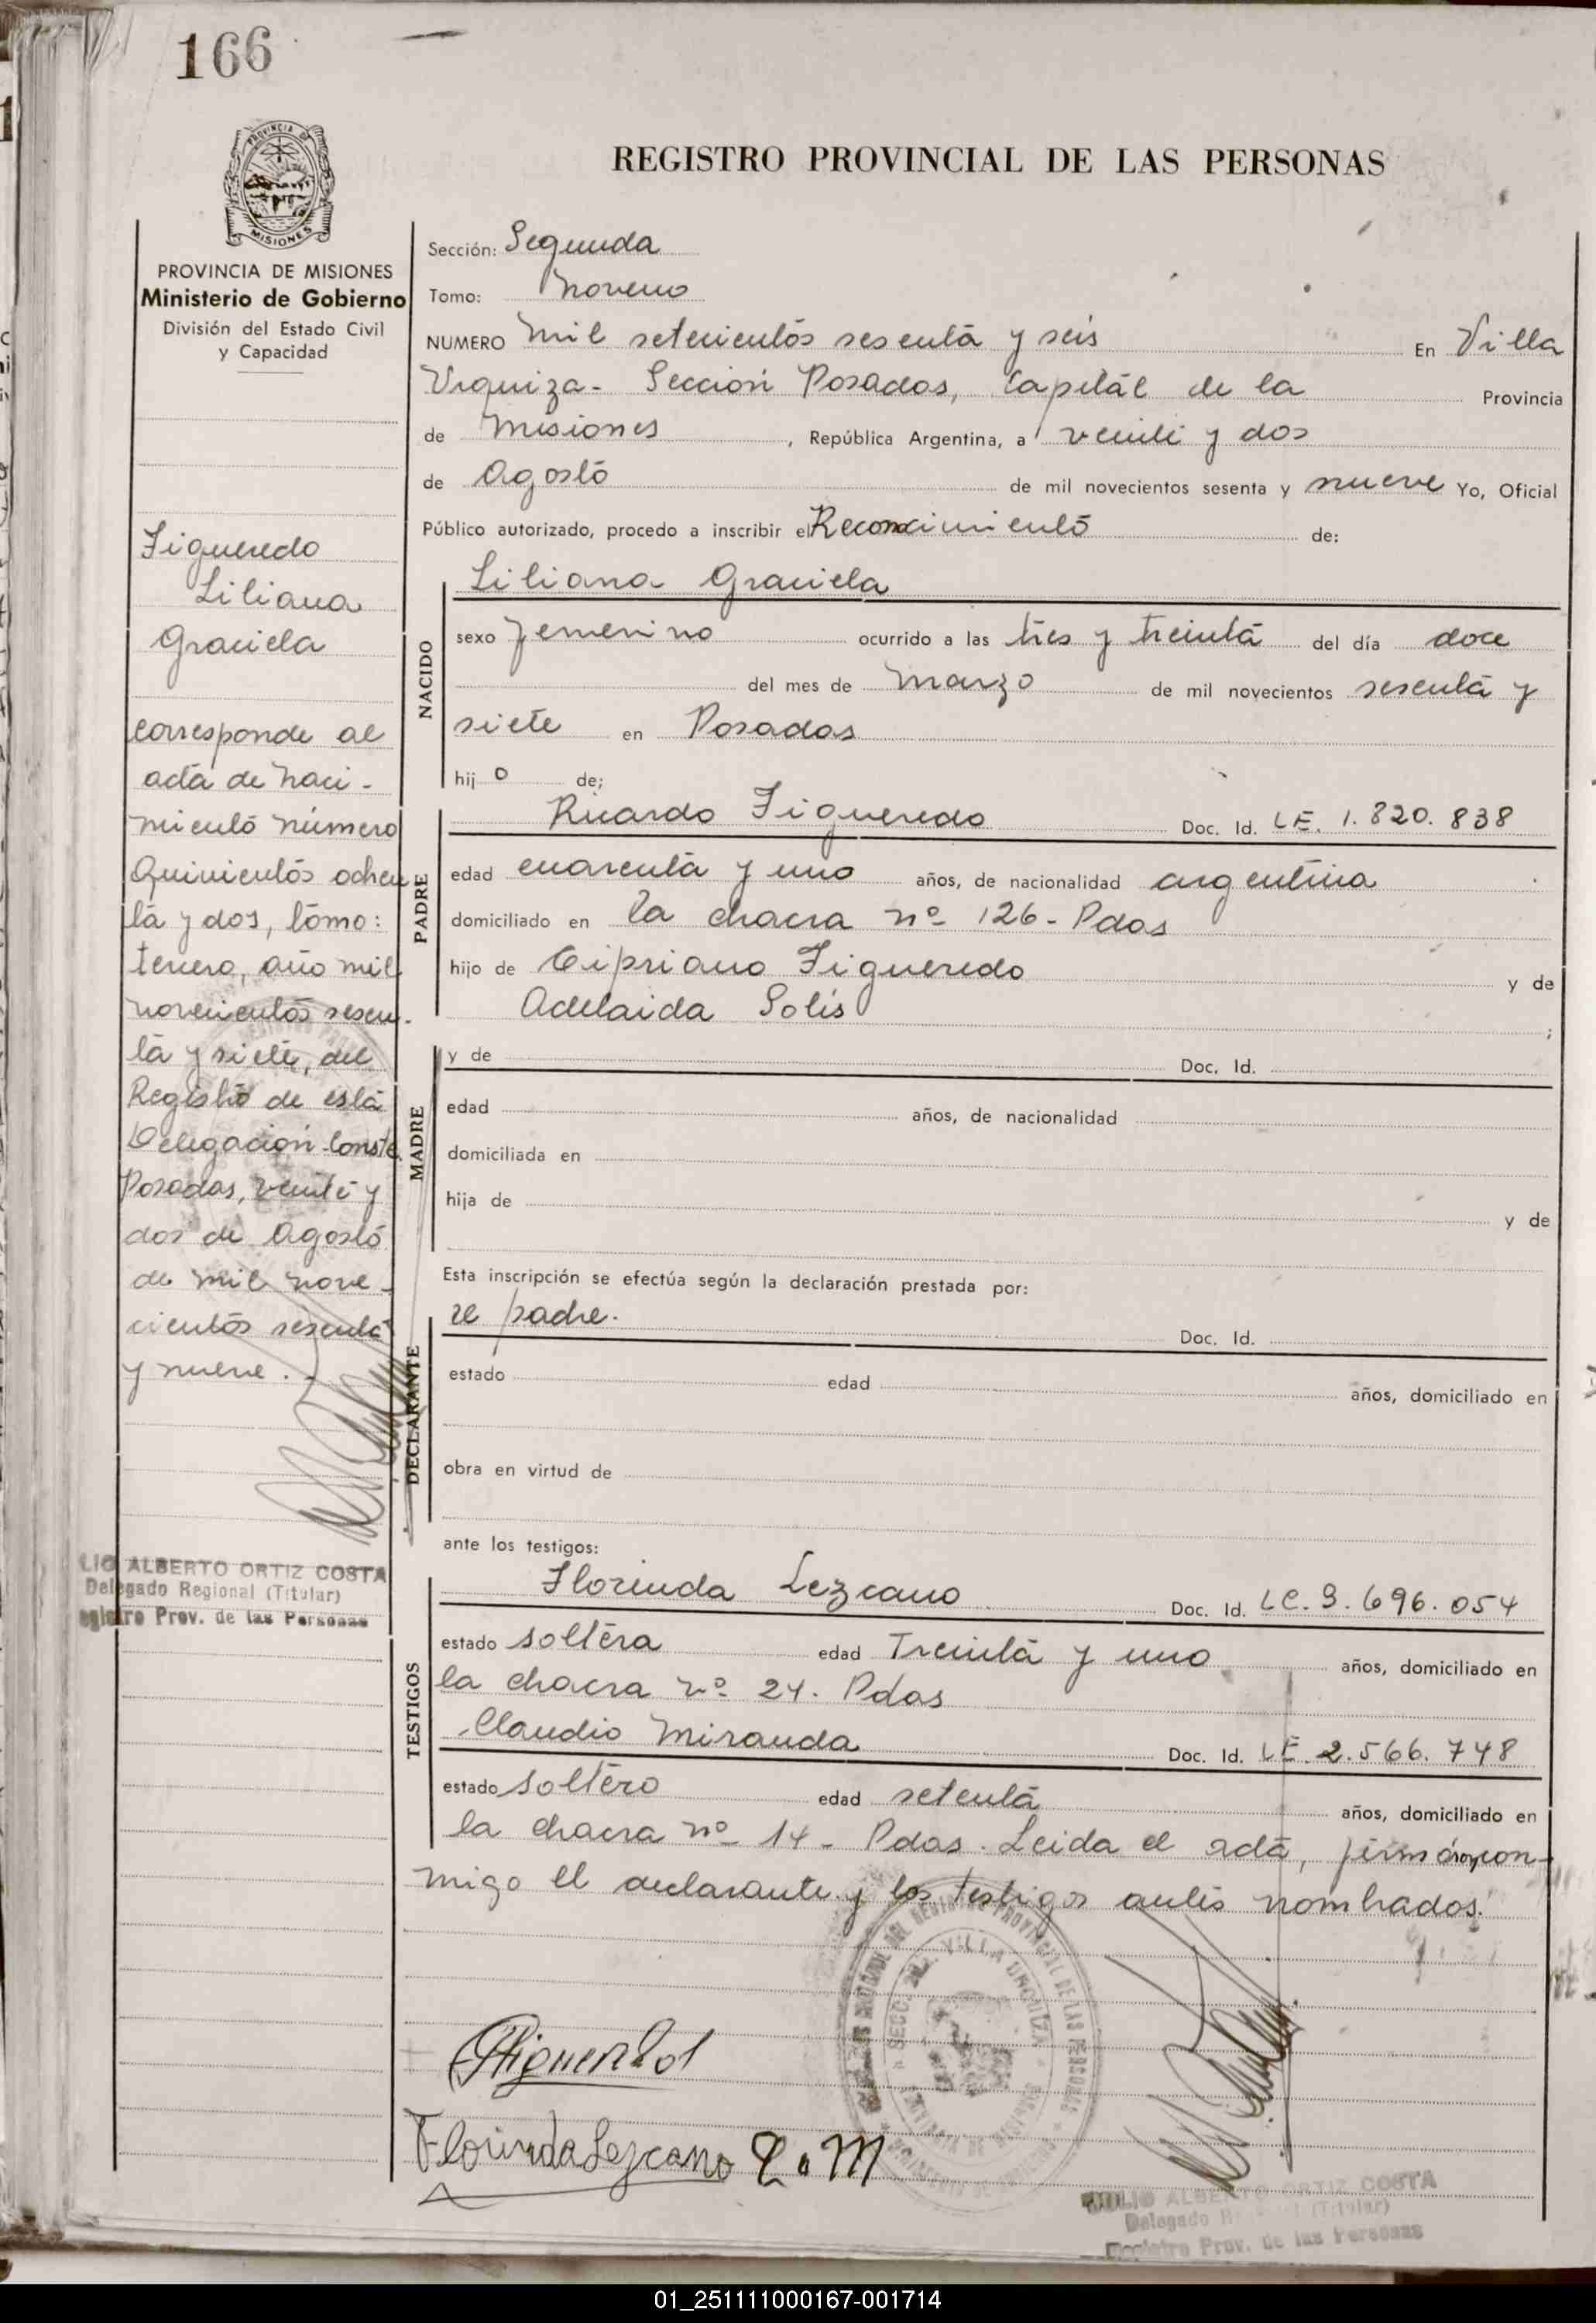 166
PROVINCIA DE
MISIONES
PROVINCIA DE MISIONES
Ministerio de Gobierno
División del Estado Civil
y Capacidad
Figueredo
Liliana
Graciela
Corresponde al
acta de Naci-
miento número
Quinientos ochen
ta y dos, tomo:
tercero, año mil
novecientos sesen-
ta y siete, del
Registro de esta
Delegación-Conste
Posadas, veinte y
dos de Agosto
de mil nove-
cientos sesenta
y nueve.-
LIO ALBERTO ORTIZ COSTA
Delegado Regional (Titular)
egistro Prov. de las Personas
REGISTRO PROVINCIAL DE LAS PERSONAS
Sección: Segunda
Tomo: Noveno
NUMERO Mil setecientos sesenta y seis En Villa
Urquiza- Sección Posadas, Capital de la Provincia
de Misiones, República Argentina, a veinte y dos
de Agosto de mil novecientos sesenta y nueve Yo, Oficial
Público autorizado, procedo a inscribir el Reconocimiento de:
NACIDO
Liliana Graciela
sexo femenino ocurrido a las tres y treinta del día doce
del mes de Marzo de mil novecientos sesenta y
siete en Posadas
hij o de;
PADRE
Ricardo Figueredo Doc. Id. LE. 1.820.838
edad cuarenta y uno años, de nacionalidad argentina
domiciliado en la chacra nº 126- Pdas
hijo de Cipriano Figueredo y de
Adelaida Solis ;
MADRE
y de Doc. Id.
edad años, de nacionalidad
domiciliada en
hija de y de
Esta inscripción se efectúa según la declaración prestada por:
DECLARANTE
el padre. Doc. Id.
estado edad años, domiciliado en
obra en virtud de
ante los testigos:
TESTIGOS
Florinda Lezcano Doc. Id. LC. 3.696.054
estado soltera edad Treinta y uno años, domiciliado en
la chacra nº 24. Pdas
Claudio Miranda Doc. Id. LE 2.566.748
estado soltero edad setenta años, domiciliado en
la chacra nº 14- Pdas. Leida el acta, firmáron con-
migo el declarante y los testigos antes nombrados.
REGISTRO PROVINCIAL DE LAS PERSONAS
SECC. VILLA URQUIZA
Florinda Lezcano
JULIO ALBERTO ORTIZ COSTA
Delegado (Titular)
Registro Prov. de las Personas
01_251111000167-001714